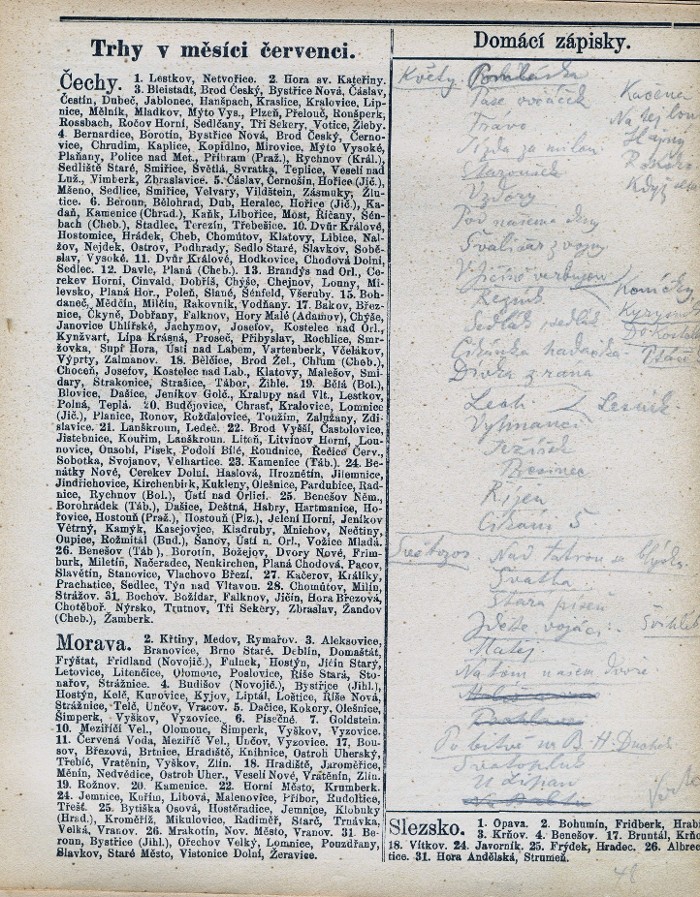 Trhy v měsíci červenci.
Čechy. 1. Lestkov, Netvořice. 2. Hora sv. Kateřiny.
3. Bleistadt, Brod Český, Bystřice Nová, Čáslav,
Čestín, Dubeč, Jablonec, Hanšpach, Kraslice, Kralovice, Lip-
nice, Mělník, Mladkov, Mýto Vys., Plzeň, Přelouč, Ronšperk,
Rossbach, Ročov Horní, Sedlčany, Tři Sekery, Votice, Žleby.
4. Bernardice, Borotín, Bystřice Nová, Brod Český, Černo-
vice, Chrudim, Kaplice, Kopidlno, Mirovice, Mýto Vysoké,
Plaňany, Police nad Met., Příbram (Praž.), Rychnov (Král.),
Sedliště Staré, Smiřice, Světlá, Svratka, Teplice, Veselí nad
Luž., Vimberk, Zbraslavice. 5. Čáslav, Černošín, Hořice (Jič.),
Mšeno, Sedlice, Smiřice, Velvary, Vildštein, Zásmuky, Žlu-
tice. 6. Beroun, Bělohrad, Dub, Heralec, Hořice (Jič.), Ka-
daň, Kamenice (Chrud.), Kaňk, Libořice, Most, Říčany, Šén-
bach (Cheb.), Stadlec, Terezín, Třebešice. 10. Dvůr Králové,
Hostomice, Hrádek, Cheb, Chomútov, Klatovy, Libice, Nal-
žov, Nejdek, Ostrov, Podhrady, Sedlo Staré, Slavkov, Sobě-
slav, Vysoké. 11. Dvůr Králové, Hodkovice, Chodová Dolní,
Sedlec. 12. Davle, Planá (Cheb.). 13. Brandýs nad Orl., Ce-
rekev Horní, Cinvald, Dobříš, Chýše, Chejnov, Louny, Mi-
levsko, Planá Hor., Poleň, Slané, Šénfeld, Všeruby. 15. Boh-
daneč, Mědčín, Milčín, Rakovník, Vodňany. 17. Bakov, Březnice,
Čkyně, Dobřany, Falknov, Hory Malé (Adamov), Chýše,
Janovice Uhlířské, Jachymov, Josefov, Kostelec nad Orl.,
Kynžvart, Lípa Krásná, Proseč, Přibyslav, Rochlice, Smr-
žovka, Supí Hora, Ústí nad Labem, Vartenberk, Včelákov,
Výprty, Zalmanov. 18. Bělčice, Brod Žel., Chlum (Cheb.),
Choceň, Josefov, Kostelec nad Lab., Klatovy, Malešov, Smi-
dary, Strakonice, Strašice, Tábor, Žihle. 19. Bělá (Bol.),
Blovice, Dašice, Jeníkov Golč., Kralupy nad Vlt., Lestkov,
Polná, Teplá. 20. Budějovice, Chrast, Kralovice, Lomnice
(Jič.), Planice, Ronov, Rožďalovice, Toužim, Zalužany, Zdi-
slavice. 21. Lanškroun, Ledeč. 22. Brod Vyšší, Častolovice,
Jistebnice, Kouřim, Lanškroun. Liteň, Litvínov Horní, Lou-
novice, Onsobí, Písek, Podolí Bílé, Roudnice, Řečico Červ.,
Sobotka, Svojanov, Velhartice. 23. Kamenice (Táb.). 24. Be-
nátky Nové, Cerekev Dolní, Haslová, Hroznětín, Jilemnice,
Jindřichovice, Kirchenbirk, Kukleny, Olešnice, Pardubice, Rad-
nice, Rychnov (Bol.), Ústí nad Orlicí. 25. Benešov Něm.,
Borohrádek (Táb.), Dašice, Deštná, Habry, Hartmanice, Ho-
řovice, Hostouň (Praž.), Hostouň (Plz.), Jelení Horní, Jeníkov
Větrný, Kamýk, Kasejovice, Kladruby, Mnichov, Nečtiny,
Oupice, Rožmitál (Bud.), Šanov, Ústí n. Orl., Vožice Mladá.
26. Benešov (Táb.), Borotín, Božejov, Dvory Nové, Frim-
burk, Miletín, Načeradec, Neunkirchen, Planá Chodová, Pacov,
Slavětín, Stanovice, Vlachovo Březí. 27. Kačerov, Králíky,
Prachatice, Sedlec, Týn nad Vltavou. 28. Chomútov, Milín,
Strážov. 31. Bochov, Božídar, Falknov, Jičín, Hora Březová,
Chotěboř, Nýrsko, Trutnov, Tři Sekery, Zbraslav, Žandov
(Cheb.), Žamberk.
Morava. 2. Křtiny, Medov, Rymařov. 3. Aleksovice,
Branovice, Brno Staré, Deblín, Domaštát,
Fryštat, Fridland (Novojič.), Fulnek, Hostýn, Jičín Starý,
Letovice, Litenčice, Olomouc, Poslovice, Říše Stará, Sto-
nařov, Strážnice. 4. Budišov (Novojič.), Bystřice (Jihl.),
Hostýn, Kelč, Kunovice, Kyjov, Liptál, Loštice, Říše Nová,
Strážnice, Telč, Unčov, Vracov. 5. Dačice, Kokory, Olešnice,
Šimperk, Vyškov, Vyzovice. 6. Písečné. 7. Goldstein.
10. Meziříčí Vel., Olomouc, Šimperk, Vyškov, Vyzovice.
11. Červená Voda, Meziříč Vel., Unčov, Vyzovice. 17. Bou-
sov, Březová, Brtnice, Hradiště, Knihnice, Ostroh Uherský,
Třebíč, Vratěnín, Vyškov, Zlín. 18. Hradiště, Jaroměřice,
Měnín, Nedvědice, Ostroh Uher., Veselí Nové, Vratěnín, Zlín.
19. Rožnov. 20. Kamenice. 22. Horní Město, Krumberk.
24. Jemnice, Kuřim, Libová, Malenovice, Příbor, Rudoltice,
Třešť. 25. Bytiška Osová, Hostěradice, Jemnice, Klobuky
(Hrad.), Kroměříž, Mikulovice, Radiměř, Stařč, Trnávka,
Velká, Vranov. 26. Mrakotín, Nov. Město, Vranov. 31. Be-
ronn, Bystřice (Jihl.), Ořechov Velký, Lomnice, Pouzdřany,
Slavkov, Staré Město, Vistonice Dolní, Žeravice.
Domácí zápisky.
Květy.
Páse ovčáček
Trávo
Jízda za milou
Vzdory
Pod našema okny
Švališár z vojny
Řezník
Sedlák sedlák
Cikánka hadačka
Divka z rána
Lesák Lesník
Vyhnanci
Ježíšek
Říjen
Cikáni 5
Světozor. Nad Tatrou sa blýská
Svatba
Stará píseň
Matej
Na tom našem dvoře
Svatopluk
U Lipan
Slezsko. 1. Opava. 2. Bohumín, Fridberk, Hrab
3. Krňov. 4. Benešov. 17. Bruntál, Krňo
18. Vítkov. 24. Javorník. 25. Frýdek, Hradec. 26. Albrec
tice. 31. Hora Andělská, Strumeň.
48